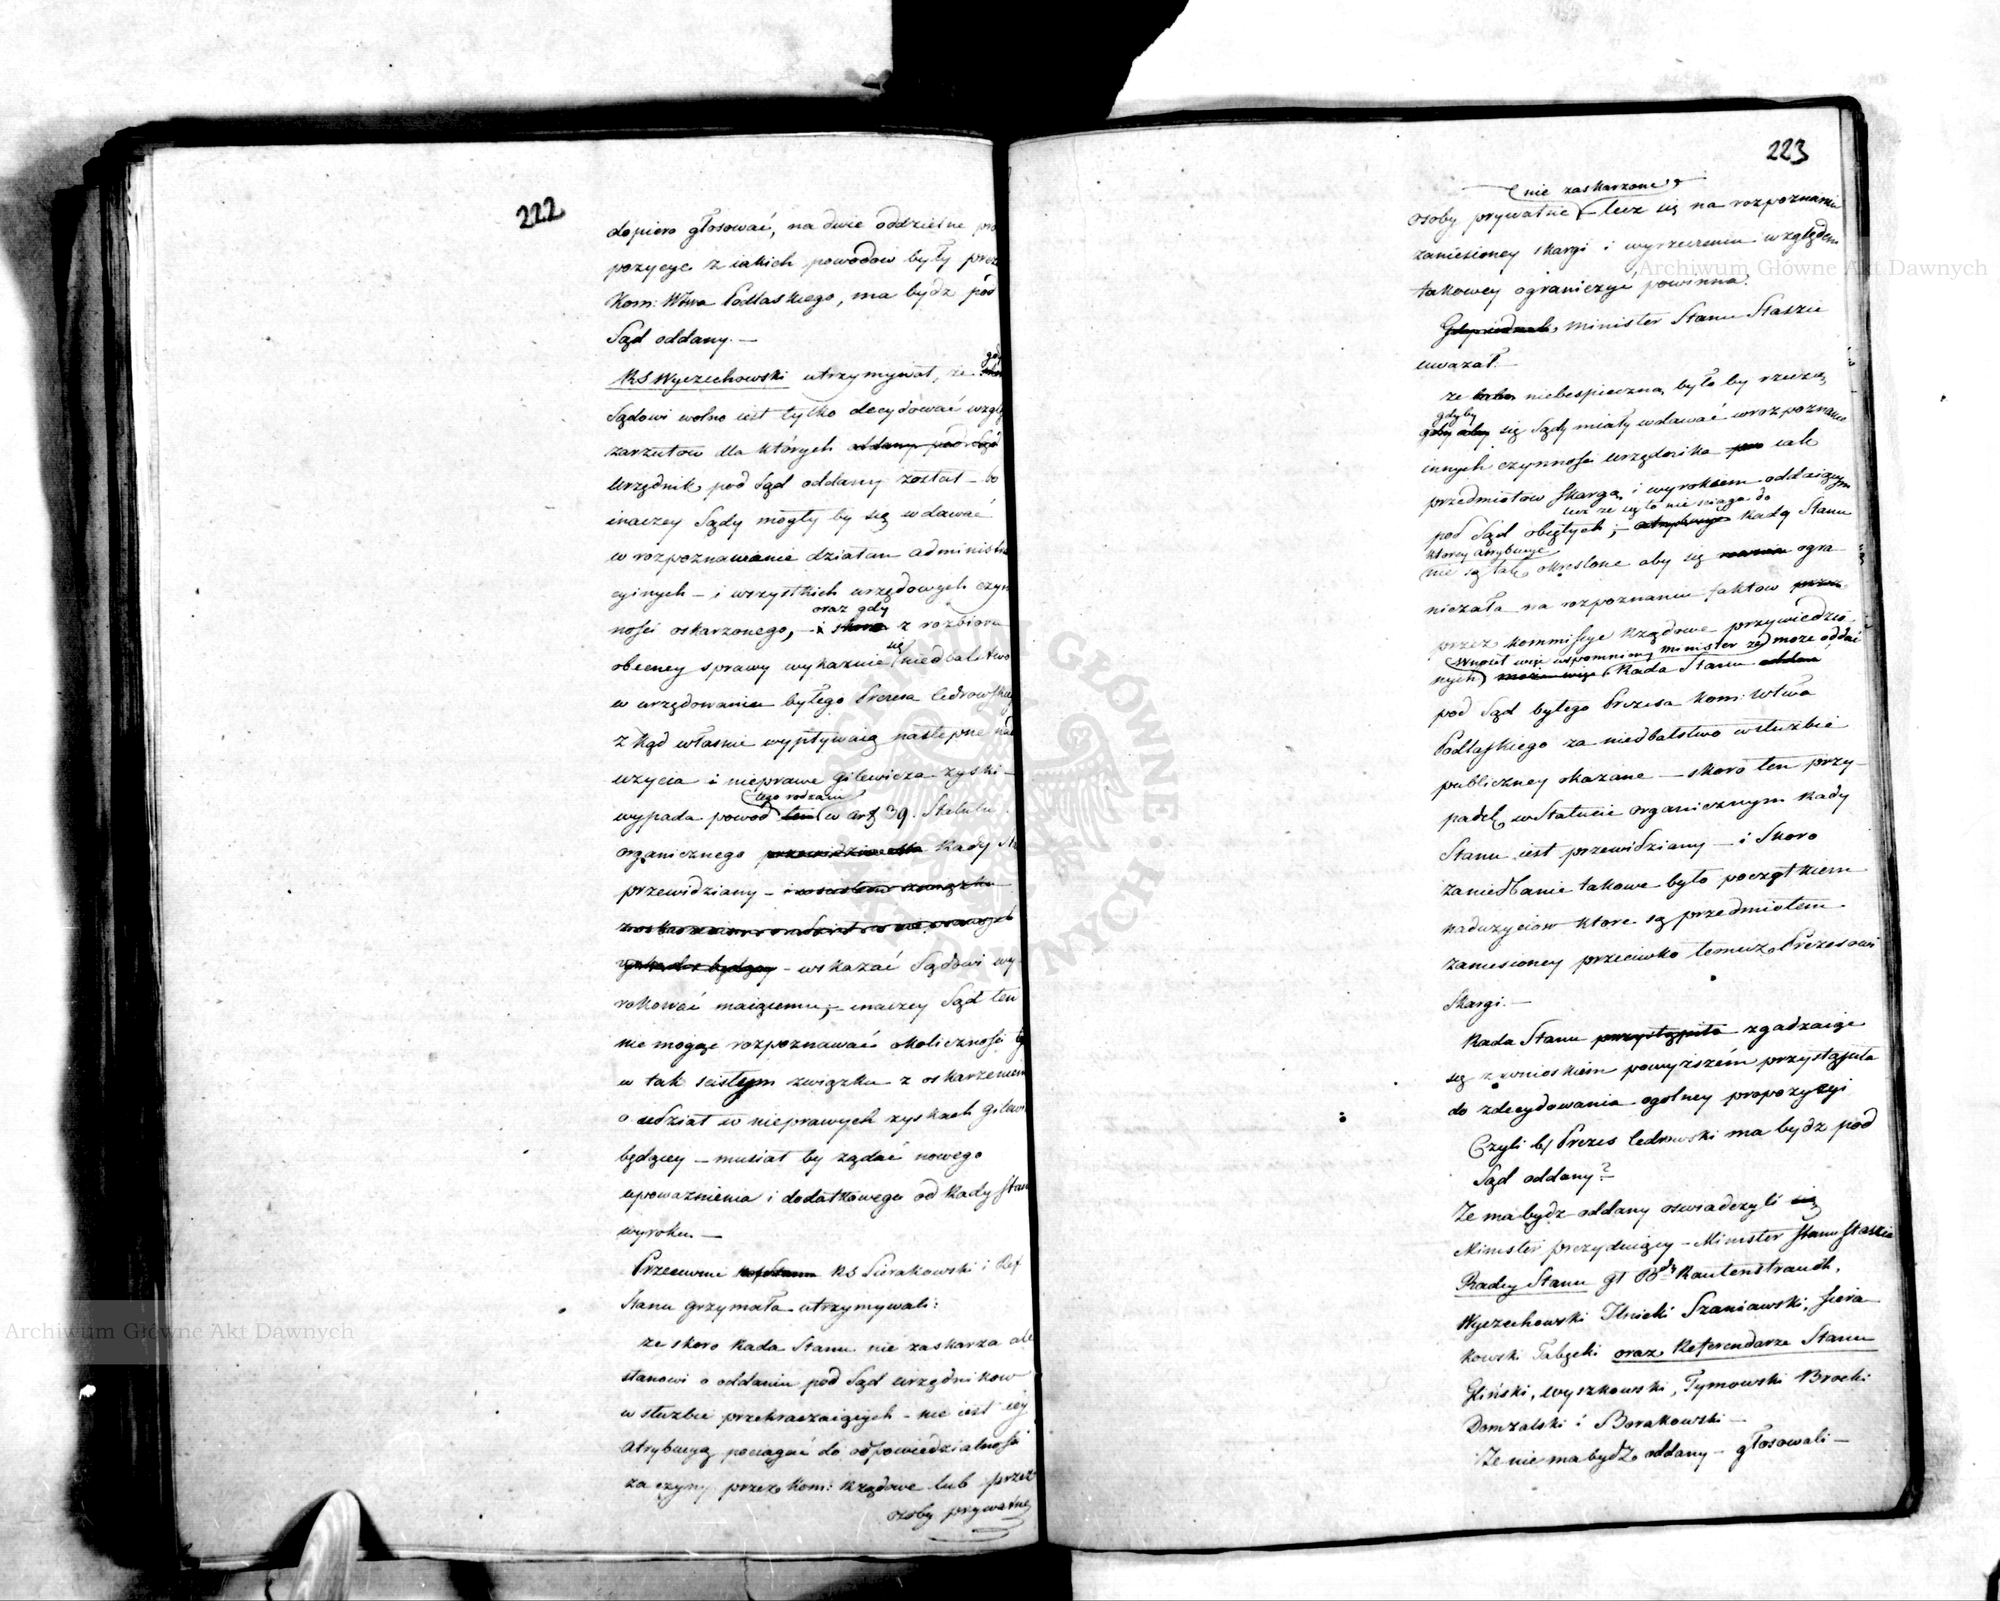 222
dopiero głosować, na dwie oddzielne pro
pozycye z iakich powodow były prez
Kom: Wtwa Podlaskiego, ma bydz pod
Sąd oddany. —
RS Wyczechowski utrzymywał, że gdy
Sądowi wolno iest tylko decydować wzglę
zarzutow dla których oddany pod Sąd
Urzędnik pod Sąd oddany został — bo
inaczey Sądy mogły by się wdawać
w rozpoznawanie działan administra
cyinych — i wszystkich urzędowych czyn
oraz gdy
ności oskarzonego, — i skoro z rozbioru
obecney sprawy wykazuie się niedbalstwo
w urzędowaniu byłego Prezesa Cedrowskieg
z kąd własnie wypływaią następne nad
uzycia i nieprawe Gilewicza zyski —
tego rodzaiu
wypada powod ten w art 39. Statutu
organicznego Rady St
przewidziany — i w scisłem związku
będący — wskazać Sądowi wy
rokować maiącemu, — inaczey Sąd ten
nie mogąc rozpoznawać okoliczności tę
w tak scisłym związku z oskarzeniem
o udział w nieprawych zyskach Gilewi
będącey — musiał by ządać nowego
upowaznienia i dodatkowego od Rady Stan
wyroku. —
Przeciwnie RS Sierakowski i Ref
Stanu Grzymała utrzymywali:
ze skoro Rada Stanu nie zaskarza ale
stanowi o oddaniu pod Sąd urzędnikow
w słuzbie przekraczaiących — nie iest iey
Atrybucyą pociągać do odpowiedzialności
za czyny przez Kom: Rządowe lub przez
osoby prywatne
223
nie zaskarzone
osoby prywatne lecz się na rozpoznaniu
zaniesioney skargi i wyrzeczeniu względem
takowey ograniczyć powinna.
Gdy iednak Minister Stanu Staszic
uwazał. —
ze niebespieczną było by rzeczą,
gdyby
się Sądy miały wdawać w rozpoznanie
innych czynności urzędnika iak
przedmiotow skargą i wyrokiem oddaiącym
lecz ze się to nie sciąga do
pod Sąd obiętych; — Radę Stanu
ktorey atrybucye
nie są tak okreslone aby się ogra
niczała na rozpoznaniu faktow
przez Kommissye Rządowe przywiedzio
Wniosł więc wspomniony Minister ze moze oddać
nych Rada Stanu
pod Sąd byłego Prezesa Kom: Wtwa
Podlaskiego za niedbalstwo w słuzbie
publiczney okazane — skoro ten przy-
padek w Statucie organicznym Rady
Stanu iest przewidziany — i skoro
zaniedbanie takowe było początkiem
naduzyciow ktore są przedmiotem
zaniesioney przeciwko temuz Prezesowi
Skargi. —
Rada Stanu przystąpiła zgadzaiąc
się z wnioskiem powyzszém przystąpiła
do zdecydowania ogolney propozycyi
Czyli b/ Prezes Cedrowski ma bydz pod
Sąd oddany? —
Ze ma bydz oddany oswiadczyli się
Minister prezyduiący — Minister Stanu Staszic
Radcy Stanu Gł Bdy Rautenstrauch,
Wyczechowski Ilnicki Szaniawski, Siera
kowski Tabęcki oraz Referendarze Stanu
Gliński, Wyszkowski, Tymowski Brocki
Domzalski i Borakowski —
Ze nie ma bydz oddany — głosowali —
Archiwum Główne Akt Dawnych
Archiwum Główne Akt Dawnych
ARCHIWUM GŁÓWNE AKT DAWNYCH